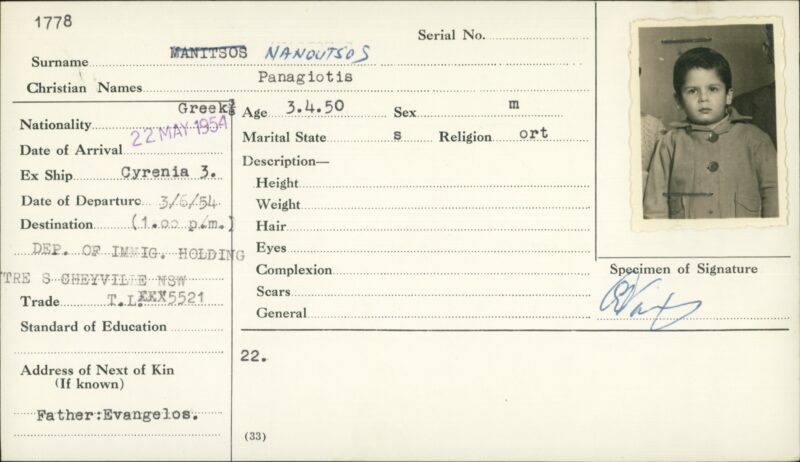 1778
Serial No.
Surname MANITSOS NANOUTSOS
Christian Names Panagiotis
Nationality Greek
Date of Arrival 22 MAY 1954
Ex Ship Cyrenia 3.
Date of Departure 3/6/54
Destination (1.00 p/m.)
DEP. OF IMMIG. HOLDING
TRE S CHEYVILLE NSW
Trade T.I. XXX5521
Standard of Education
Address of Next of Kin
(If known)
Father:Evangelos.
Age 3.4.50 Sex m
Marital State s Religion ort
Description—
Height
Weight
Hair
Eyes
Complexion
Scars
General
22.
(33)
Specimen of Signature